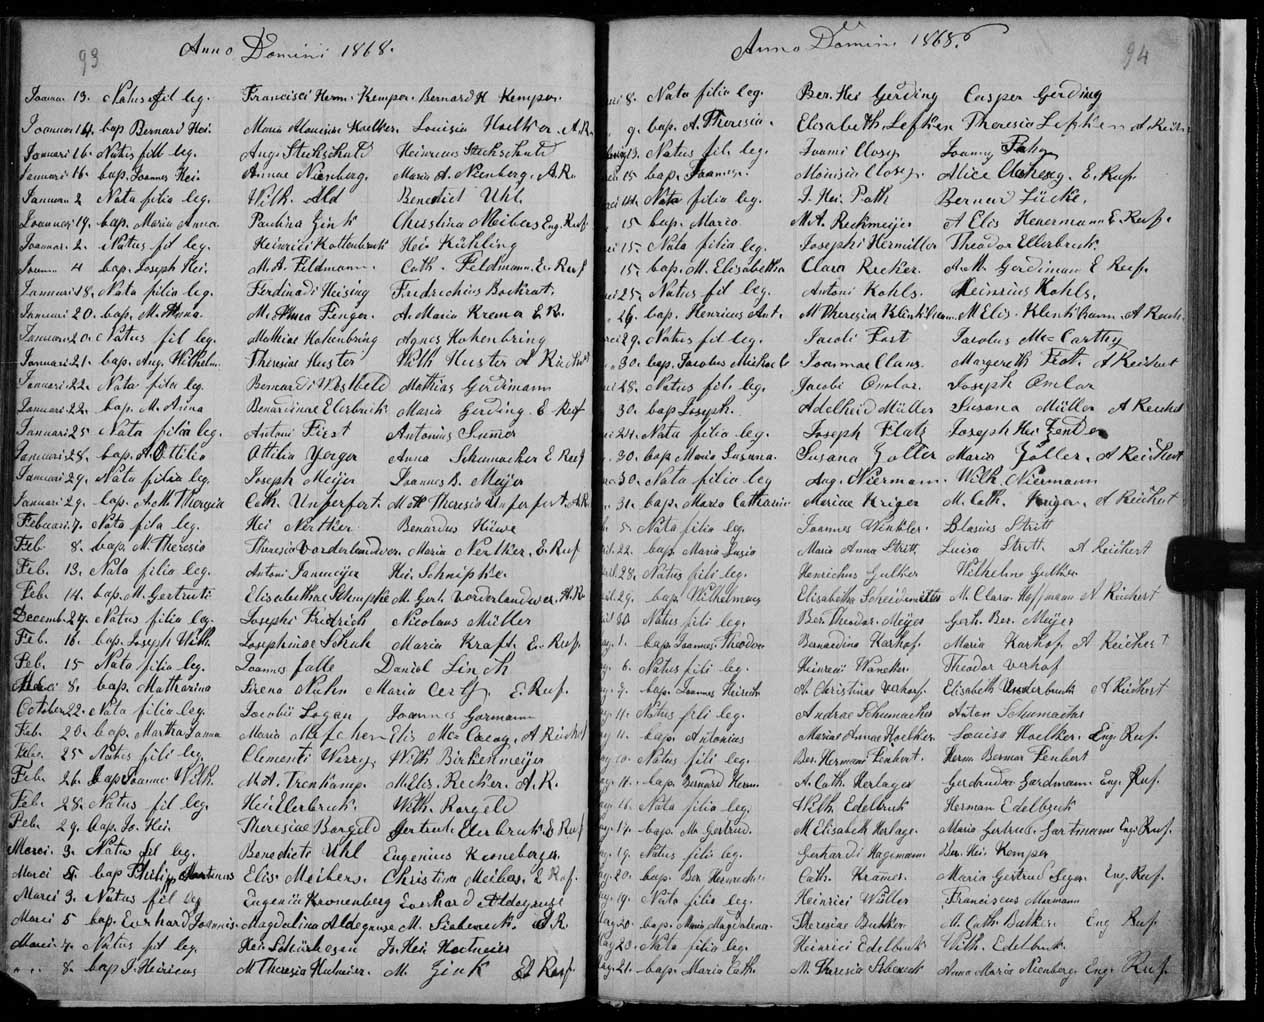 93
Anno Domini 1868.
Januar 13. Natus fil leg. Francisci Herm. Kemper. Bernard H Kemper.
Januar 14. bap Bernard Hei. Maria Aloisiae Hoelker. Louisia Hoelker. A. R.
Januari 16. Natus fili leg. Aug. Stekschuld Heinricus Stekschuld
Januari 16. bap. Joannes Hei Annae Nienberg. Maria A. Nienberg. A. R.
Januar 2 Nata filia leg. Wilh. Uhl Benedict Uhl.
Januari 14. bap. Maria Anna. Paulina Gink Christina Meibers Eng. Ruf.
Januar. 2. Natus fil leg. Heinrici Kottenbruk Hei Kühling
Januar 4 bap. Joseph Hei. M. A. Feldmann. Cath. Feldmann. E. Ruf
Januari 18. Nata filia leg. Ferdinadi Heising Fredrichius Bockrat.
Januari 20. bap. M. Anna. M. Anna Fenger. A. Maria Krema E. R.
Januari 20. Natus fil leg. Mathias Hakenbring Agnes Hakenbring
Januari 21. bap. Aug. Wilhelm. Theresiae Huster Wilh Huster A Richert
Januari 22. Nata filia leg. Bernardi Westbeld Mathias Gerdimann
Januari 22. bap. M. Anna Benardinae Elerbruk Maria Gerding. E. Ruf
Januari 25 Nata filia leg. Antoni Fiest Antonius Sumer
Januari 28. bap. A. Ottilia Attilia Yerger Anna Schumacker E Ruf
Januari 29. Nata filia leg. Joseph Meijer Joannes B. Meijer
Januari 29. bap. A. M. Theresia Cath. Unferfert M. A. Theresia Unferfert A. R.
Februari 7. Nata fila leg. Hei Nertker Benardus Hüwe
Feb 8. bap. M. Theresia Theresia Vorderlandwer. Maria Nertker. E. Ruf
Feb. 13. Nata filia leg. Antoni Janmeijer Hei. Schnipke.
Feb. 14. bap. M. Gertruti Elisabethae Schnipke M. Gert. Vorderlandwer. A. R.
Decemb. 24. Natus filia leg. Josephi Fridrich Nicolaus Müller
Feb. 16. bap. Joseph Wilh. Josephinae Schuh Maria Kraft. E. Ruf.
Feb. 15 Nata filia leg. Joannes falle Daniel Linch
8. bap. M. Catharina Sirena Nuhn Maria Certy E. Ruf.
October 22. Nata filia leg. Jacobi Logan Joannes Gormann
Feb. 20. bap. Martha Janna Maria Elis Mc A Reichert
Febr. 25 Natus fili leg. Clementi Wilh Birkenmeijer
Feb. 26. bap Joannes Wilh. M. A. Trenkamp. M. Elis. Recker. A. R.
Feb. 28. Natus fil leg. Hei Ellerbruk. Wilh. Borgeld
Feb. 29. bap. Jo. Hei. Theresiae Borgeld Gertrud. Elerbruk E Ruf
Marci. 3. Natus fil leg. Benedicti Uhl Eugenius Kroneberger.
Marci 5. bap Philip Martinus Elis. Meibers. Christina Meibers. E. Ruf.
Marci 3. Natus fil leg Eugenii Kronenberg Everhard Aldegruse
Marci 5 bap. Everhard Joannis. Magdalina Aldegruse M. Siebeneck. E. R.
Marci 7. Natus fil leg. Hei Schürkesin Jo. Hei Hoetmeier
8. bap J. Heiricus M Theresia Hutmeier. M. Gink E Ruf.
94
Anno Domini 1868.
8. Nata filia leg. Ber. Hei Gerding Casper Gerding
9. bap. A. Theresia. Elisabeth Lefken Theresia Lefken A Reich.
13. Natus fil. leg. Joanni Closy Joanny
15 bap. Joannes. Moinisia Closy. Alice E. Ruf.
14. Nata filia leg. J. Hei Path Bernar Lücke.
15 bap. Maria M. A. Reckmeijer A Elis Henermann E. Ruf.
15. Nata filia leg. Josephi Hermüller Theador Ellerbruk
15. bap. M. Elisabetha Clara Recker. A. M. Gerdimann E Ruf.
25. Natus fil leg. Antoni Kohls. Heinrius Kohls.
26. bap. Henricus Ant. M Theresia Klinkham M Elis. Klenkham. A Reich.
29. Natus fil leg. Jacobi Fast Jacobus Mc Carthy
30. bap. Jacobus Michael. Joannae Claus. Margereth Feat. A Reichert
28. Natus fili leg. Jacobi Omlor. Joseph Omlor
30. bap Joseph. Adelheid Müller Susana Müller A Reichert
24. Nata filia leg. Joseph Flatz Joseph Hei Zender
30. bap Maria Susana. Susana Goller Maria Goller. A Reichert
30. Nata filia leg Aug. Niermann. Wilh. Niermann
31. bap. Maria Catharina Mariae Kriger M. Cath. Kriger. A Reichert
5. Nata filia leg. Joannes Winkler. Blasius Stritt
22. bap. Maria Lusia Maria Anna Stritt. Luisa Stritt. A Reichert
28. Natus fili leg. Henrichus Gulker Wilhelmo Gulker.
29. bap. Wilhelmus Elisabetha Scheidemitter M. Clara Hoffmann A Reichert
30 Natus fili leg. Ber. Theodor. Meijer Gert. Ber. Meijer
1. bap. Joannes Theodor Bernardina Karhof. Maria Karhof. A Reichert
6. Natus fili leg. Heinreii Theodor Verhof
9. bap. Joannes Heinrich A. Christinae Verhorf. Elisabeth A Reichert
11. Natus fili leg. Andrae Schumacher Anton Schumacher
11. bap. Antonius Mariae Annae Hoelker. Louisa Hoelker. Eng. Ruf.
10. Natus fili leg. Ber. Hermani Fenbert. Herm. Bernar Fenbert
11. bap. Bernard Herm. A. Cath. Herlager Gerdrudra Gardmann. Eng. Ruf.
16. Nata filia leg. Wilh. Edelbruk Herman Edelbruk
17. bap. M. Gertrud. M Elisabeth Herlage. Maria Gertrud. Hartmann Eng. Ruf.
19. Natus fili leg. Gerhardi Hagemann Ber. Hei. Kemper
20. bap. Ber. Heinrich. Cath. Kramer. Maria Gertrud Seger. Eng. Ruf.
19. Nata filia leg. Heinrici Wöller Franciscus Mormann
20. bap. Maria Magdalena. Theresiae Bukker. M. Cath. Bakker. Eng Ruf.
23. Nata filia leg. Heinrici Edelbruk Wilh. Edelbruk.
21. bap. Maria Cath. M. Theresia Siebeneck Anna Maria Nienberg. Eng. Ruf.